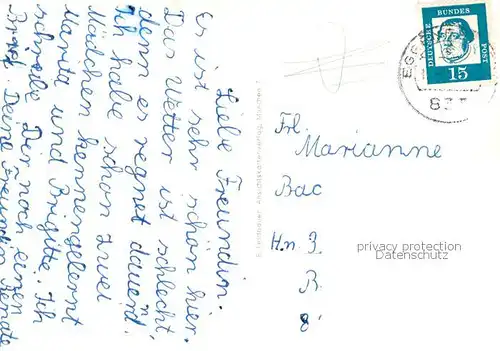 Liebe Freundin.
Es ist sehr schön hier.
Das Wetter ist schlecht,
denn es regnet dauernd.
Ich habe schon zwei
Mädchen kennengelernt
Marita und Brigitte. Ich
schreibe Dir noch einen
Brief. Deine Freundin Renate
DEUTSCHE BUNDESPOST
15
EGG
835
Frl.
Marianne
Bac
H.n. 3.
B.
8
privacy protection
Datenschutz